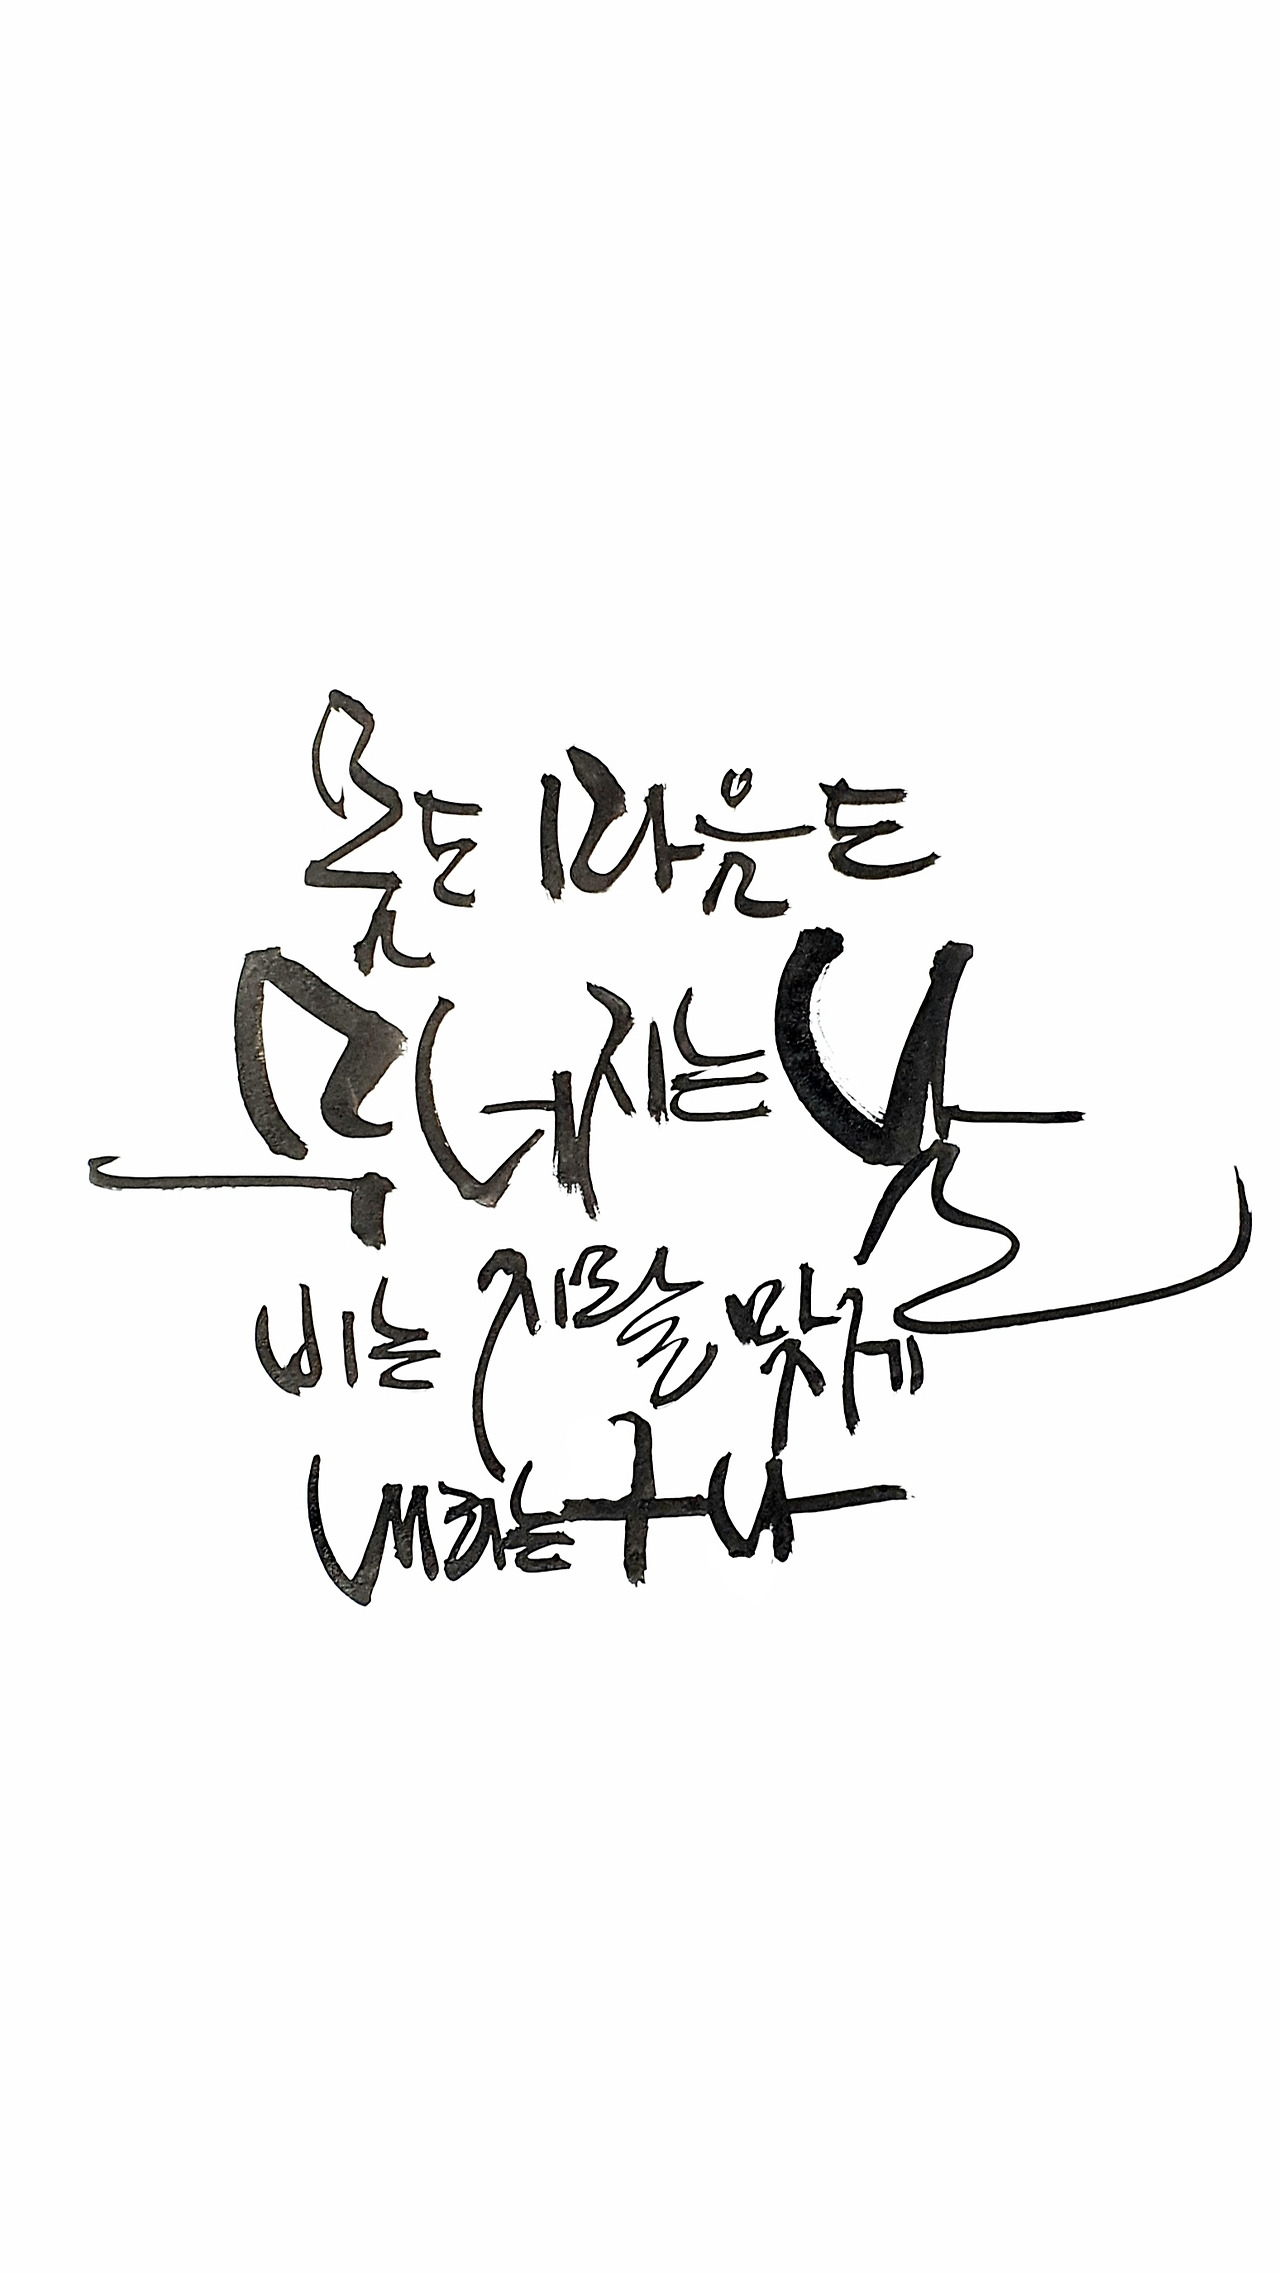 몸도 마음도
무너지는 날
비는 지랄 맞게
내리는구나